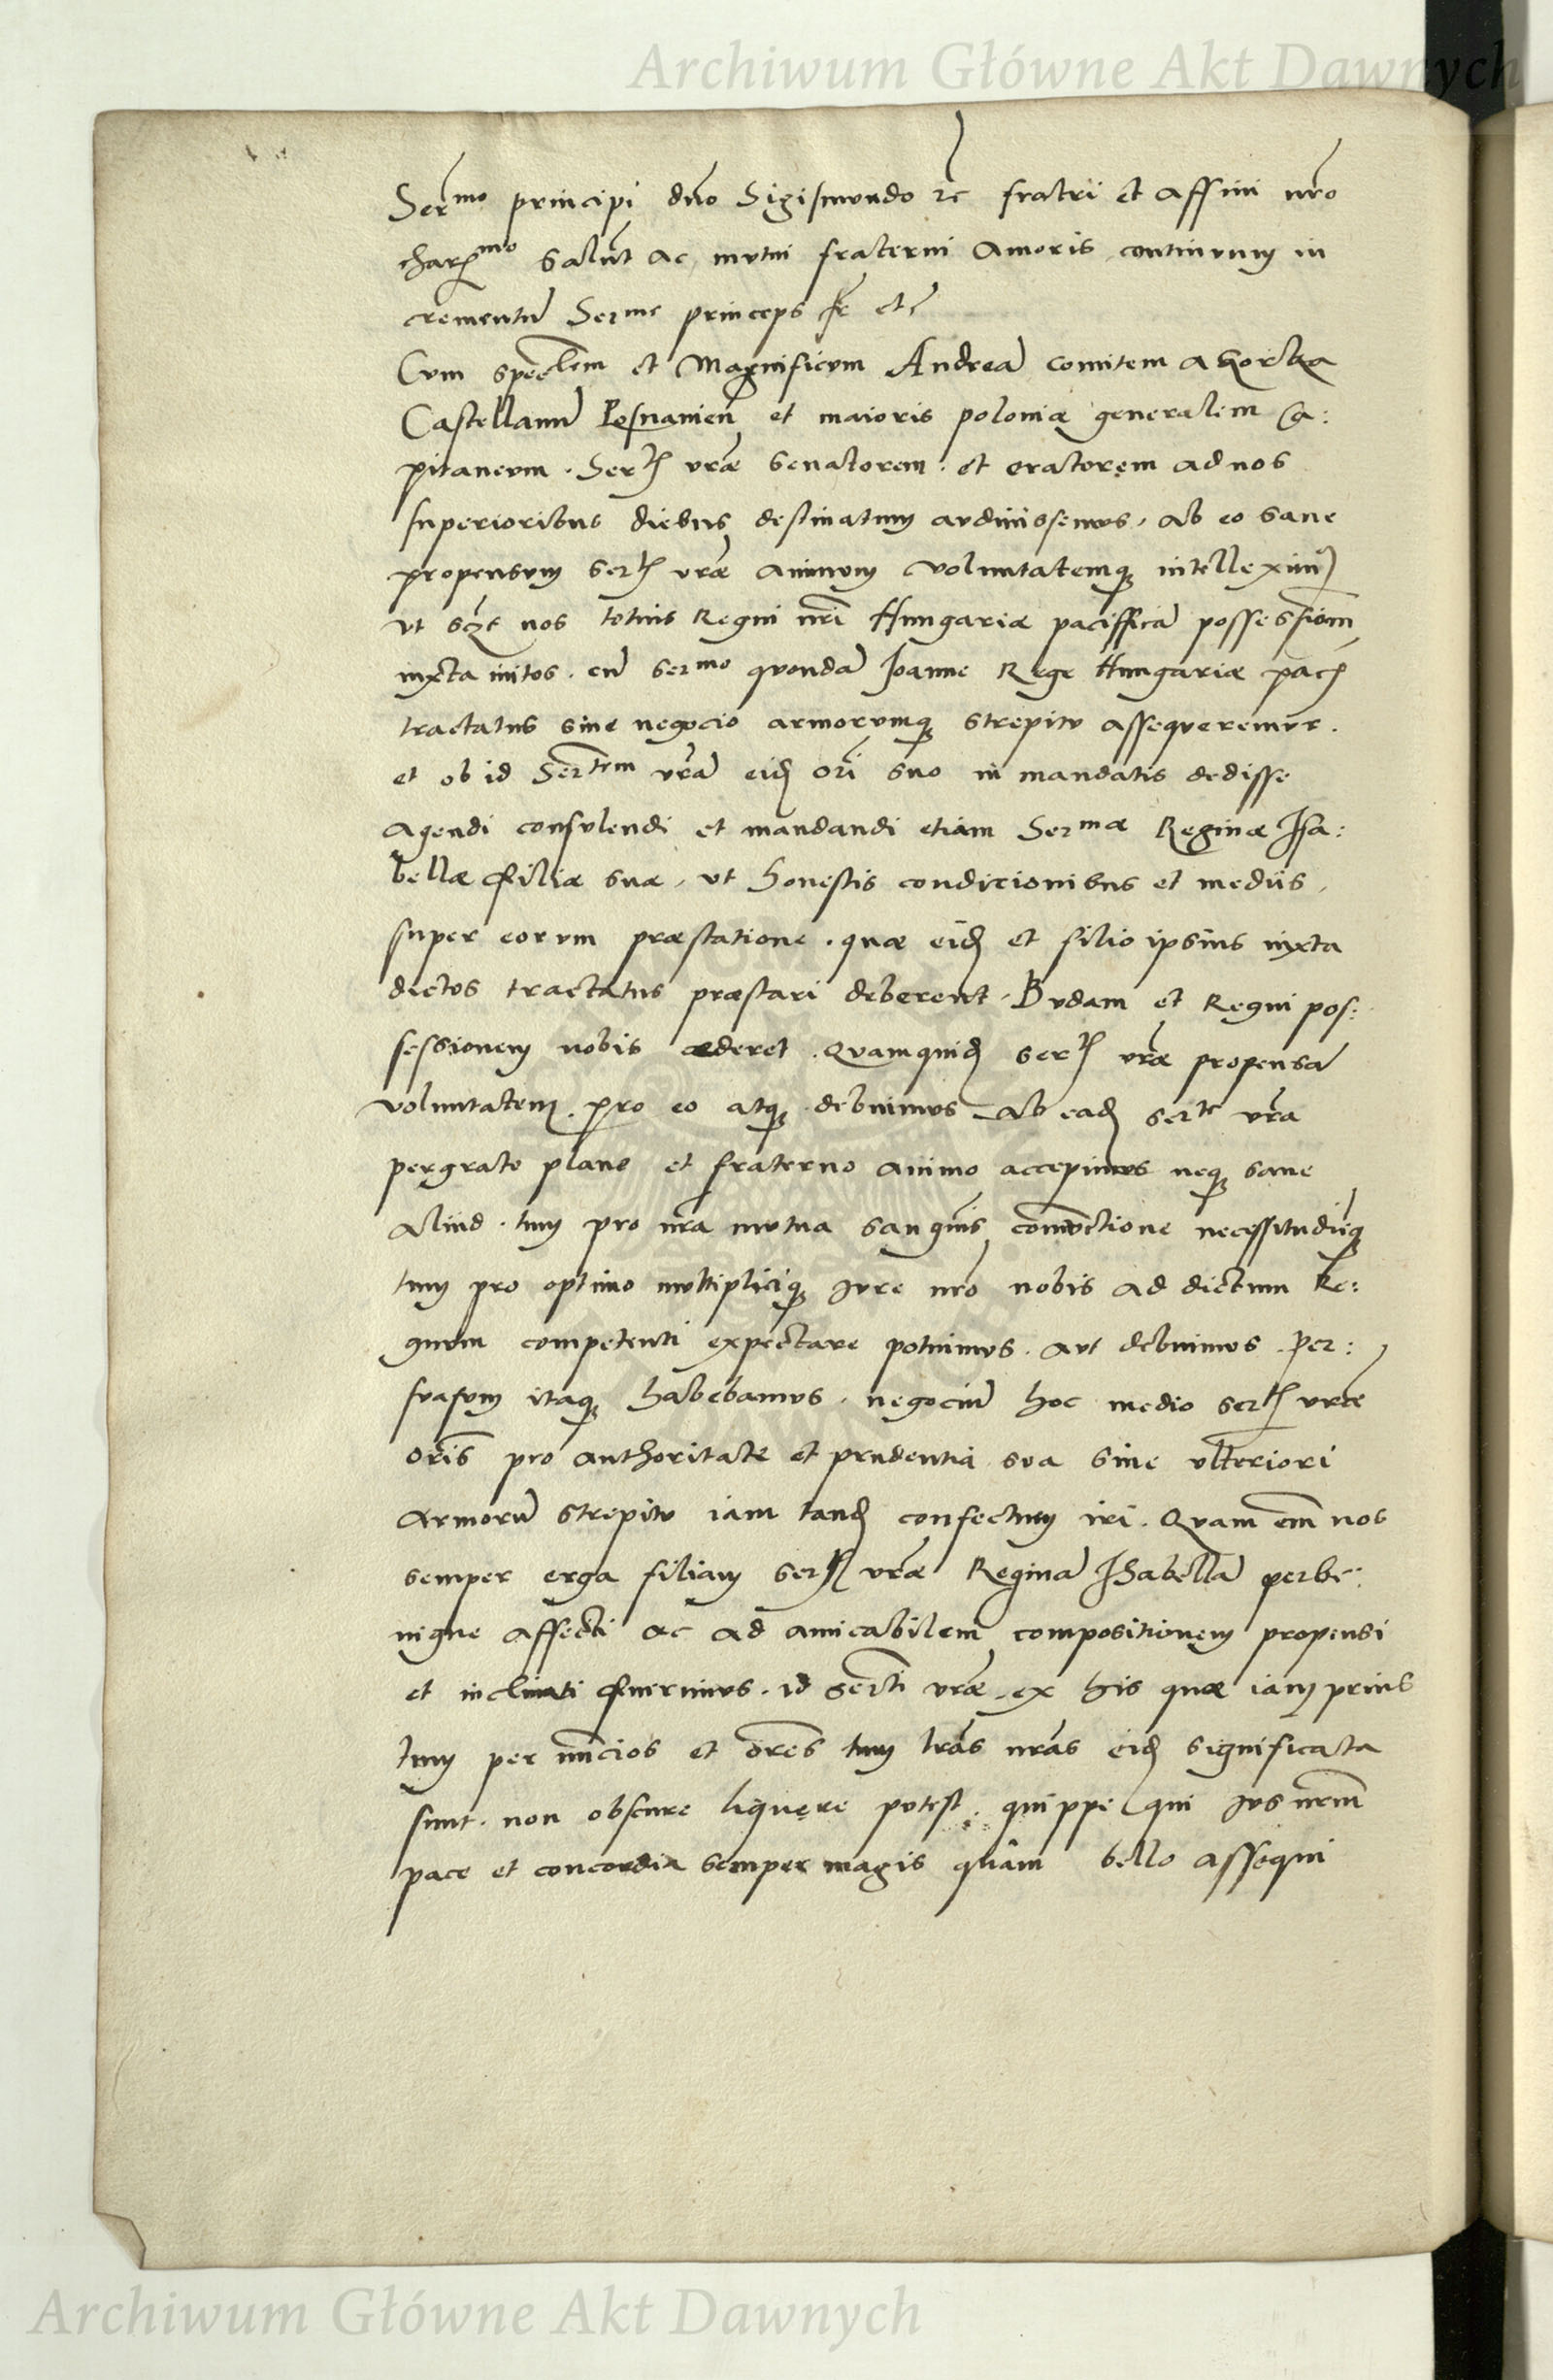 Archiwum Główne Akt Dawnych
Sermo principi dno Sigismundo etc fratri et affini nro
charmo Salut ac mutui fraterni amoris continuum in
crementu Serme princeps fr etc
Cum spectlem et Magnificum Andrea comitem a Gorka
Castellanu Posnanien et maioris poloniæ generalem Ca:
pitaneum. Sertis vræ senatorem. et oratorem ad nos
superioribus diebus destinatum audivissemus, ab eo sane
propensum sertis vræ animum voluntatemq intelleximus
ut sczt nos totius Regni nri Hungariæ paciffica possessiom
iuxta initos. cu sermo quonda Joanne Rege Hungariæ pacis
tractatus sine negocio armorumq strepitu assequeremur.
et ob id Sertem vra eid ori suo in mandatis dedisse
agendi consulendi et mandandi etiam Sermæ Reginæ Isa:
bellæ filiæ suæ, ut honestis condicionibus et mediis,
super eorum præstatione. quæ eid et filio ipsius iuxta
dictos tractatus præstari deberent. Budam et Regni pos:
sessionem nobis cæderet. Quamquid sertis vræ propensa
voluntatem. pro eo atq debuimus ab ead serte vra
pergrato plane et fraterno animo accepimus neq sane
aliud. tum pro nra mutua sanguis coniunctione necessitudiq
tum pro optimo multipliciq jure nro nobis ad dictum Re:
gnum competenti expectare potuimus. aut debuimus. Per:
suasum itaq habebamus. negociu hoc medio sertis vræ
oris pro authoritate et prudentia sua sine ulteriori
armoru strepitu iam tand confectum iri. Quam em nos
semper erga filiam sertis vræ Regina Isabella perbe:
nigne affecti ac ad amicabilem compositionem propensi
et inclinati fuerimus. id serti vræ ex his quæ iam prius
tum per nuncios et ores tum lras nras eid significata
sunt. non obscure liquere potest. quippe qui jus nrm
pace et concordia semper magis quàm bello assequi
Archiwum Główne Akt Dawnych